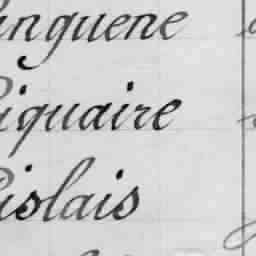 inguene
iquaire
islais